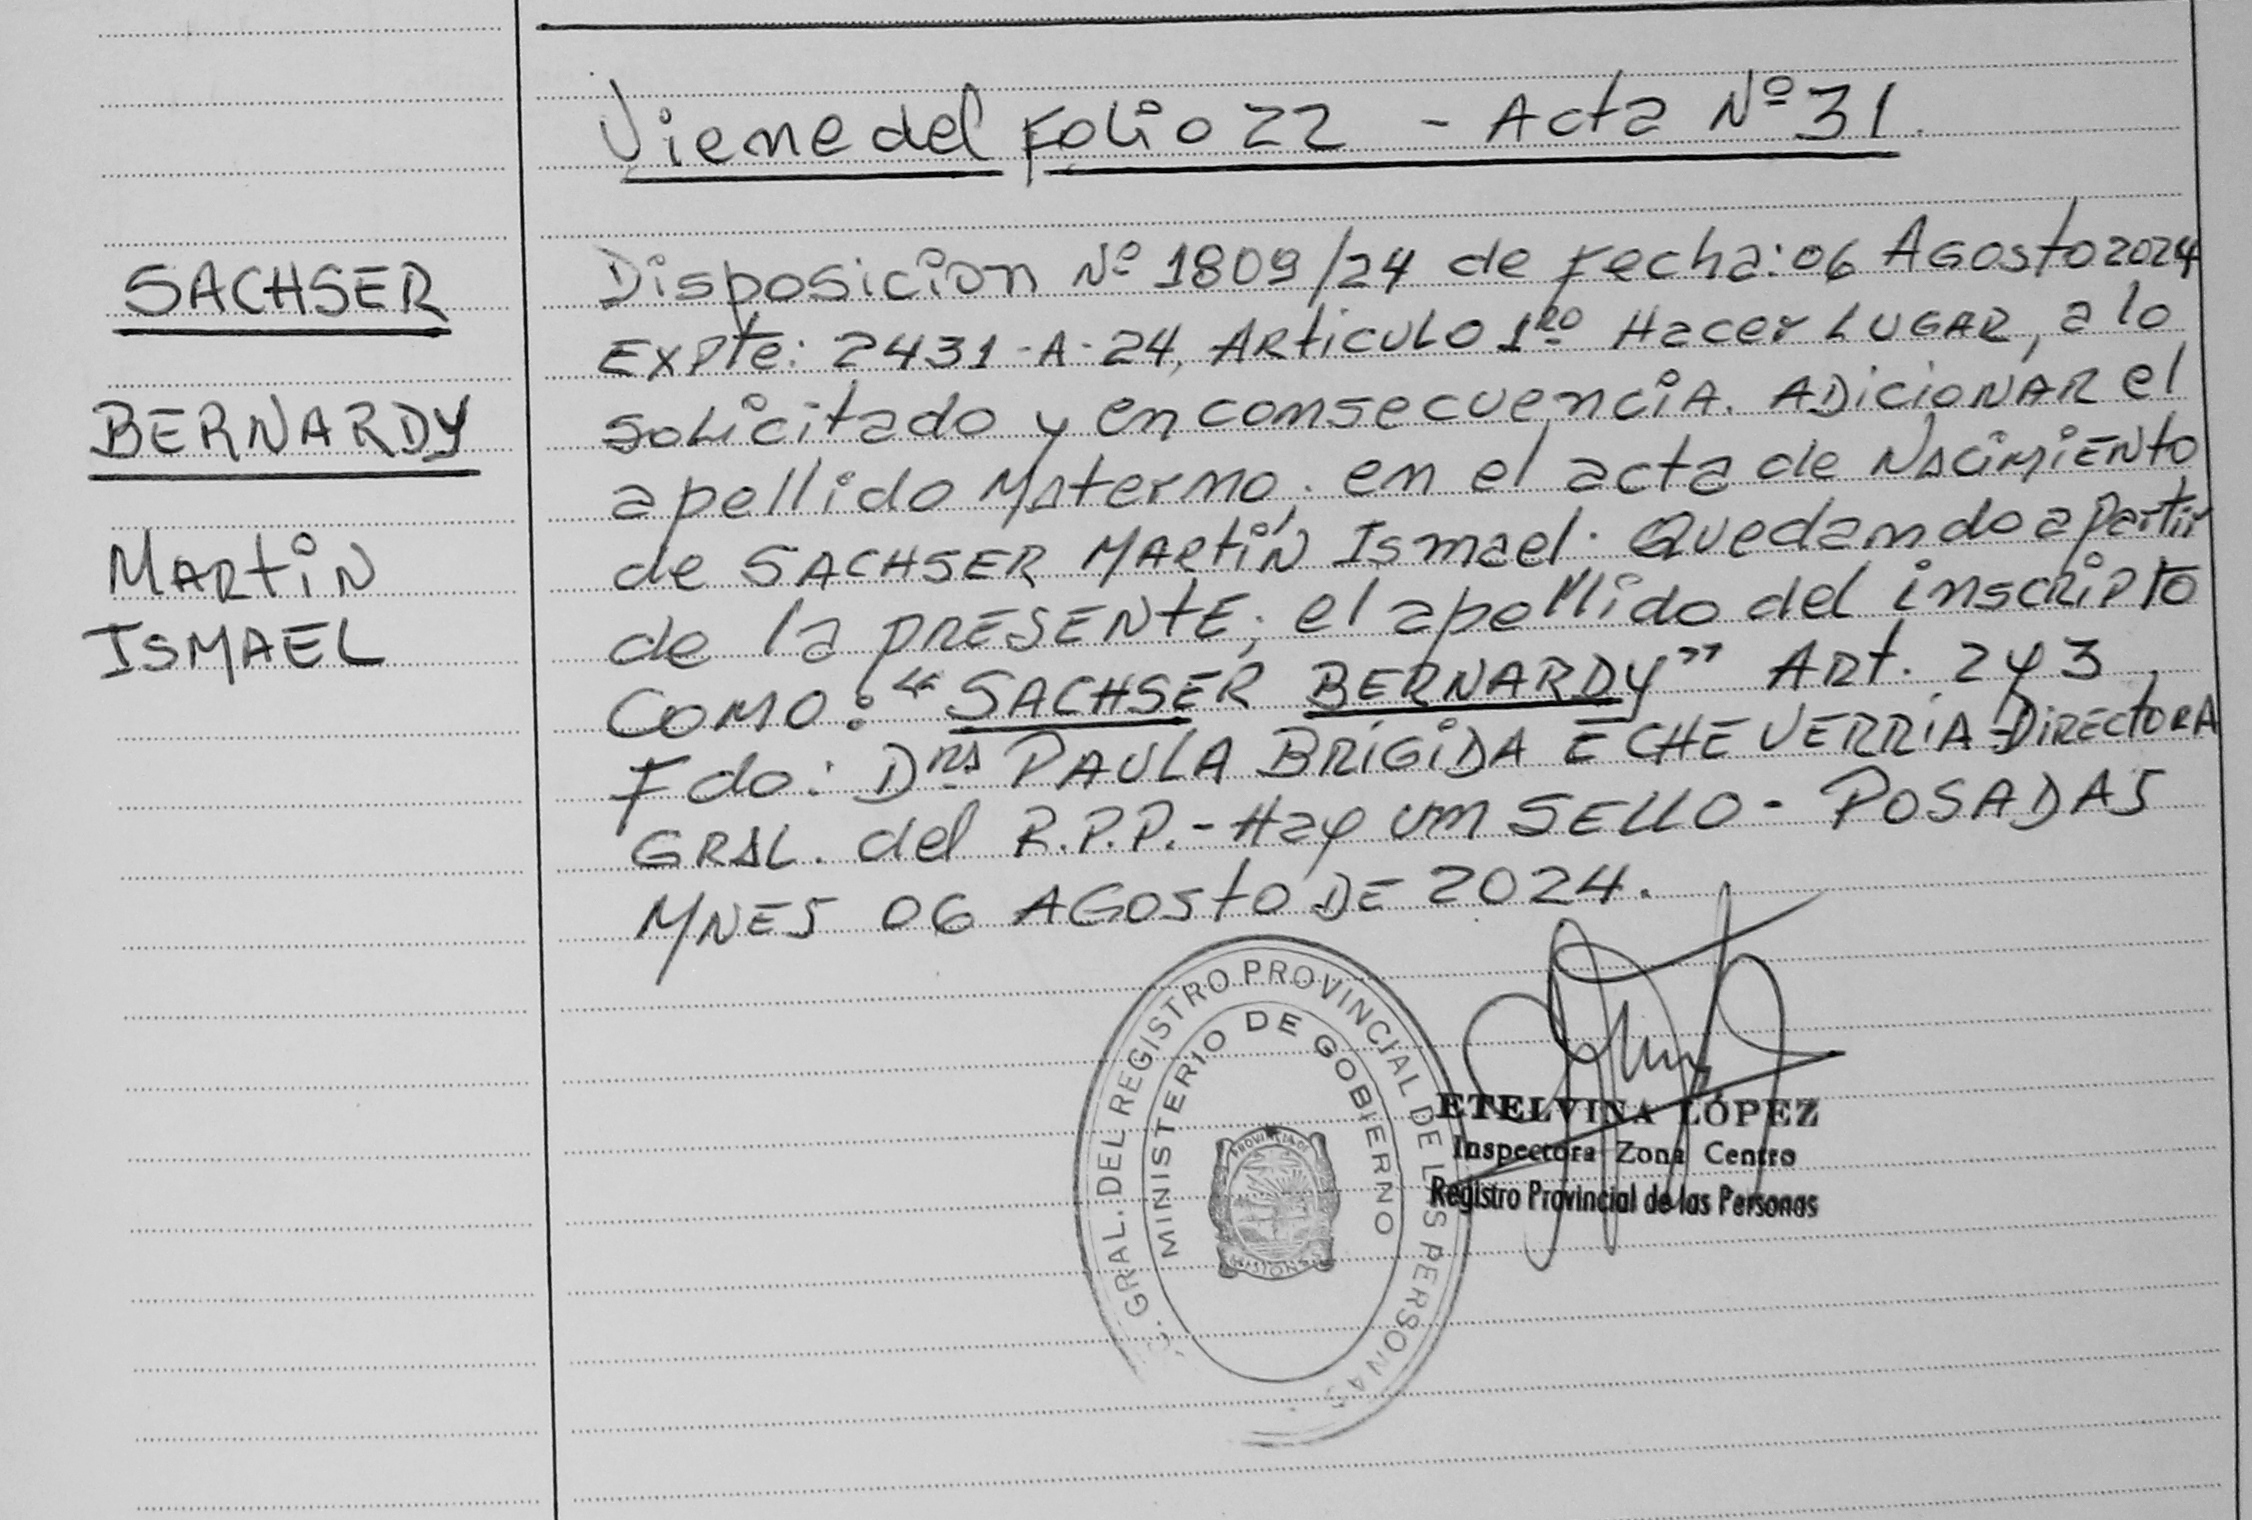 Viene del Folio 22 - Acta Nº 31.
SACHSER
BERNARDY
MARtiN
ISMAEL
Disposicion Nº 1809/24 de Fecha: 06 AGosto 2024
EXPte: 2431-A-24, ARticuLO 1RO Hacer LUGAR, a lo
soLicitado y en consecuenciA. ADicioNAR el
apellido Materno. en el acta de NacimiENto
de SACHSER MARtíN Ismael. Quedando a partir
de la PRESENtE; el apellido del inscRiPto
COMO: “SACHSER BERNARDY” ARt. 2 y 3
Fdo: DRA PAULA BRIGIDA ECHEVERRIA-DiREctoRA
GRAL. del R.P.P.-Hay un SELLO - POSADAS
MNES 06 AGosto DE 2024.
GRAL. DEL REGISTRO PROVINCIAL DE LS PERSONAS
MINISTERIO DE GOBIERNO
PROVINCIA DE
MISIONES
ETELVINA LÓPEZ
Inspectora Zona Centro
Registro Provincial de las Personas